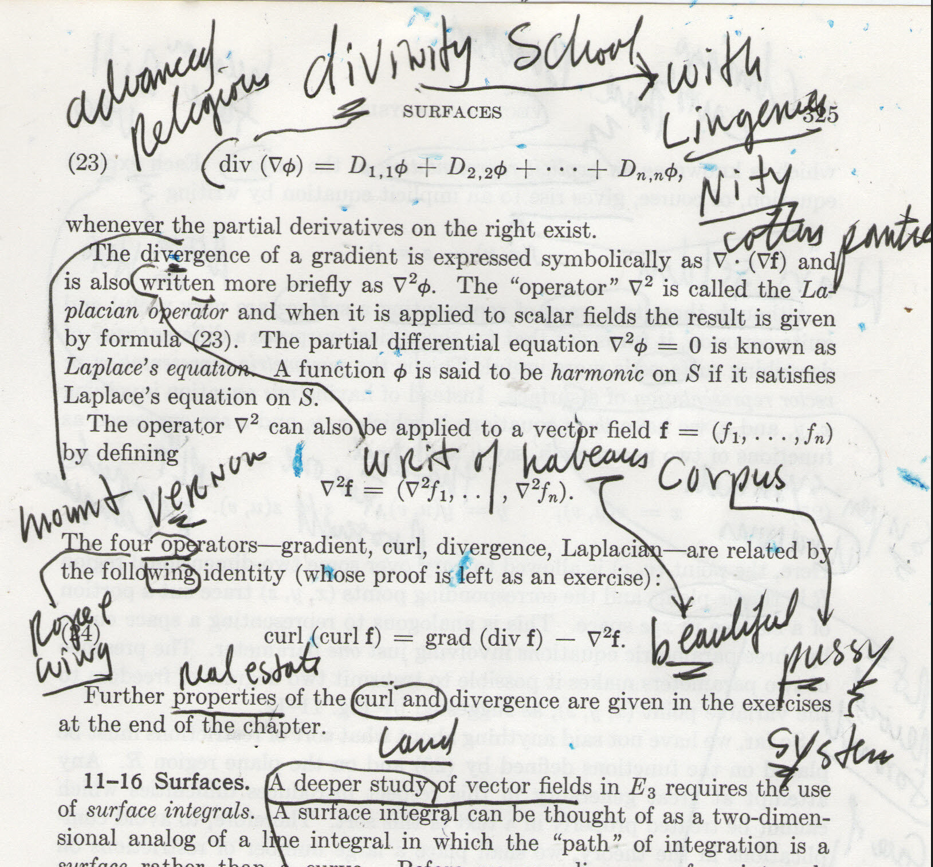 advanced
Religious divinity School with
Lingerie
SURFACES 325
(23) div (∇ϕ) = D₁,₁ϕ + D₂,₂ϕ + · · · + Dₙ,ₙϕ,
Nity
cotton panties
whenever the partial derivatives on the right exist.
The divergence of a gradient is expressed symbolically as ∇ · (∇f) and
is also written more briefly as ∇²ϕ. The “operator” ∇² is called the La-
placian operator and when it is applied to scalar fields the result is given
by formula (23). The partial differential equation ∇²ϕ = 0 is known as
Laplace's equation. A function ϕ is said to be harmonic on S if it satisfies
Laplace's equation on S.
The operator ∇² can also be applied to a vector field f = (f₁, . . . , fₙ)
by defining
Writ of habeaus Corpus
∇²f = (∇²f₁, . . . , ∇²fₙ).
mount vernon
The four operators—gradient, curl, divergence, Laplacian—are related by
the following identity (whose proof is left as an exercise):
wing
(24) curl (curl f) = grad (div f) − ∇²f.
beautiful
pussy
real estate
Further properties of the curl and divergence are given in the exercises
at the end of the chapter.
land
System
11–16 Surfaces. A deeper study of vector fields in E₃ requires the use
of surface integrals. A surface integral can be thought of as a two-dimen-
sional analog of a line integral in which the “path” of integration is a
surface rather than a curve.